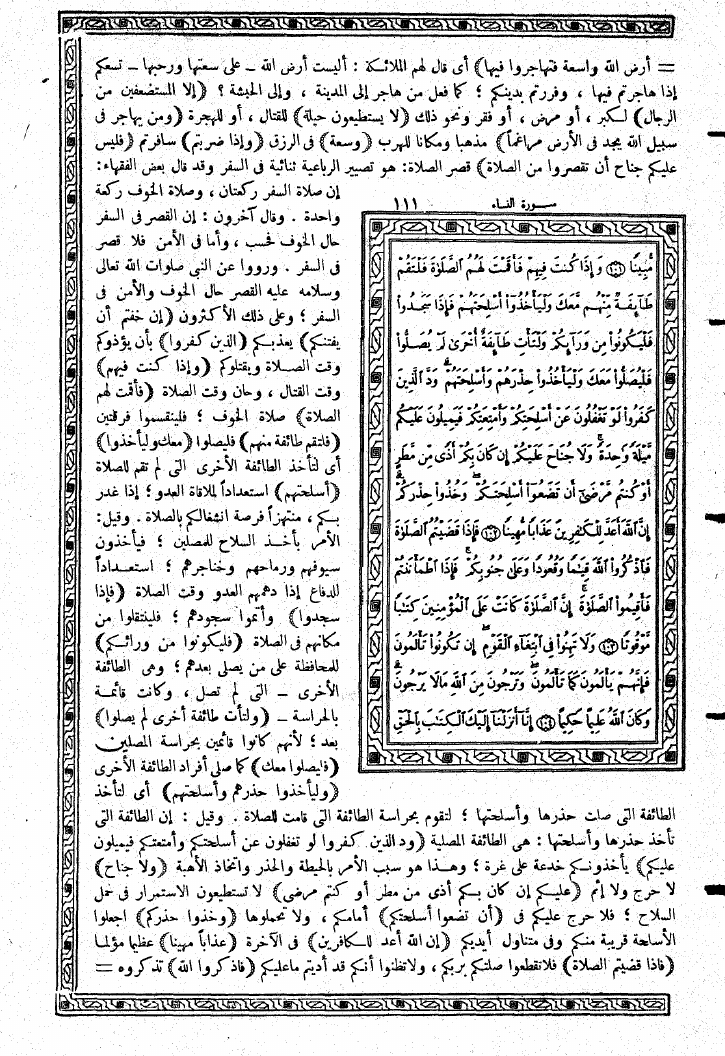 = أرض الله واسعة فتهاجروا فيها) أى قال لهم الملائكة : أليست أرض الله ــ على سعتها ورحبها ــ تسعكم
إذا هاجرتم فيها ، وفررتم بدينكم ؛ كما فعل من هاجر إلى المدينة ، وإلى الحبشة ؟ (إلا المستضعفين من
الرجال) لكبر ، أو مرض ، أو فقر ونحو ذلك (لا يستطيعون حيلة) للقتال ، أو للهجرة (ومن يهاجر فى
سبيل الله يجد فى الأرض مراغماً) مذهبا ومكانا للهرب (وسعة) فى الرزق (وإذا ضربتم) سافرتم (فليس
عليكم جناح أن تقصروا من الصلاة) قصر الصلاة: هو تصيير الرباعية ثنائية فى السفر وقد قال بعض الفقهاء:
إن صلاة السفر ركعتان ، وصلاة الخوف ركعة
واحدة . وقال آخرون : إن القصر فى السفر
حال الخوف فحسب ، وأما فى الأمن فلا قصر
فى السفر . ورووا عن النبى صلوات الله تعالى
وسلامه عليه القصر حال الخوف والأمن فى
السفر ؛ وعلى ذلك الأكثرون (إن خفتم أن
يفتنكم) يعذبكم (الذين كفروا) بأن يؤذوكم
وقت الصلاة ويقتلوكم (وإذا كنت فيهم)
وقت القتال ، وحان وقت الصلاة (فأقمت لهم
الصلاة) صلاة الخوف ؛ فلينقسموا فرقتين
(فلتقم طائفة منهم) فليصلوا (معك وليأخذوا)
أى لتأخذ الطائفة الأخرى التى لم تقم للصلاة
(أسلحتهم) استعداداً لملاقاة العدو ؛ إذا غدر
بكم ، منتهزاً فرصة انشغالكم بالصلاة . وقيل:
الأمر بأخذ السلاح للمصلين ؛ فيأخذون
سيوفهم ورماحهم وخناجرهم ؛ استعداداً
للدفاع إذا دهمهم العدو وقت الصلاة (فإذا
سجدوا) وأتموا سجودهم ؛ فلينتقلوا من
مكانهم فى الصلاة (فليكونوا من ورائكم)
للمحافظة على من يصلى بعدهم ؛ وهى الطائفة
الأخرى ــ التى لم تصل ، وكانت قائمة
بالحراسة ــ (ولتأت طائفة أخرى لم يصلوا)
بعد ؛ لأنهم كانوا قائمين بحراسة المصلين
(فليصلوا معك) كما صلى أفراد الطائفة الأخرى
(وليأخذوا حذرهم وأسلحتهم) أى لتأخذ
سورة النساء ١١١
مُّبِينًا ﴿١٠١﴾ وَإِذَا كُنتَ فِيهِمْ فَأَقَمْتَ لَهُمُ ٱلصَّلَوٰةَ فَلْتَقُمْ
طَآئِفَةٌ مِّنْهُم مَّعَكَ وَلْيَأْخُذُوٓا۟ أَسْلِحَتَهُمْ فَإِذَا سَجَدُوا۟
فَلْيَكُونُوا۟ مِن وَرَآئِكُمْ وَلْتَأْتِ طَآئِفَةٌ أُخْرَىٰ لَمْ يُصَلُّوا۟
فَلْيُصَلُّوا۟ مَعَكَ وَلْيَأْخُذُوا۟ حِذْرَهُمْ وَأَسْلِحَتَهُمْ ۗ وَدَّ ٱلَّذِينَ
كَفَرُوا۟ لَوْ تَغْفُلُونَ عَنْ أَسْلِحَتِكُمْ وَأَمْتِعَتِكُمْ فَيَمِيلُونَ عَلَيْكُم
مَّيْلَةً وَٰحِدَةً ۚ وَلَا جُنَاحَ عَلَيْكُمْ إِن كَانَ بِكُمْ أَذًى مِّن مَّطَرٍ
أَوْ كُنتُم مَّرْضَىٰٓ أَن تَضَعُوٓا۟ أَسْلِحَتَكُمْ ۖ وَخُذُوا۟ حِذْرَكُمْ ۗ
إِنَّ ٱللَّهَ أَعَدَّ لِلْكَٰفِرِينَ عَذَابًا مُّهِينًا ﴿١٠٢﴾ فَإِذَا قَضَيْتُمُ ٱلصَّلَوٰةَ
فَٱذْكُرُوا۟ ٱللَّهَ قِيَٰمًا وَقُعُودًا وَعَلَىٰ جُنُوبِكُمْ ۚ فَإِذَا ٱطْمَأْنَنتُمْ
فَأَقِيمُوا۟ ٱلصَّلَوٰةَ ۚ إِنَّ ٱلصَّلَوٰةَ كَانَتْ عَلَى ٱلْمُؤْمِنِينَ كِتَٰبًا
مَّوْقُوتًا ﴿١٠٣﴾ وَلَا تَهِنُوا۟ فِى ٱبْتِغَآءِ ٱلْقَوْمِ ۖ إِن تَكُونُوا۟ تَأْلَمُونَ
فَإِنَّهُمْ يَأْلَمُونَ كَمَا تَأْلَمُونَ ۖ وَتَرْجُونَ مِنَ ٱللَّهِ مَا لَا يَرْجُونَ ۗ
وَكَانَ ٱللَّهُ عَلِيمًا حَكِيمًا ﴿١٠٤﴾ إِنَّآ أَنزَلْنَآ إِلَيْكَ ٱلْكِتَٰبَ بِٱلْحَقِّ
الطائفة التى صلت حذرها وأسلحتها ؛ لتقوم بحراسة الطائفة التى قامت للصلاة . وقيل : إن الطائفة التى
تأخذ حذرها وأسلحتها : هى الطائفة المصلية (ود الذين كفروا لو تغفلون عن أسلحتكم وأمتعتكم فيميلون
عليكم) يأخذونكم خدعة على غرة ؛ وهذا هو سبب الأمر بالحيطة والحذر واتخاذ الأهبة (ولا جناح)
لا حرج ولا إثم (عليكم إن كان بكم أذى من مطر أو كنتم مرضى) لا تستطيعون الاستمرار فى حمل
السلاح ؛ فلا حرج عليكم فى (أن تضعوا أسلحتكم) أمامكم ، ولا تحملوها (وخذوا حذركم) اجعلوا
الأسلحة قريبة منكم وفى متناول أيديكم (إن الله أعد للكافرين) فى الآخرة (عذاباً مهينا) عظيما مؤلما
(فاذا قضيتم الصلاة) فلا تقطعوا صلتكم بربكم ، ولا تظنوا أنكم قد أديتم ماعليكم (فاذكروا الله) تذكروه =